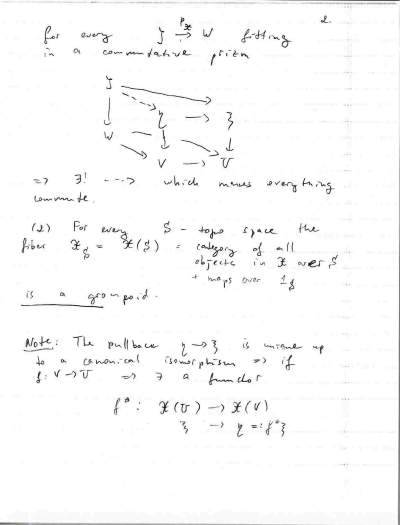 2
for every ζ →^{p_X} W fitting
in a commutative prism
ζ
η → ξ
W
V → U
=> ∃! ---> which makes everything
commute.
(2) For every S - topo space the
fiber X_S = X(S) = category of all
objects in X over S
+ maps over 1_S
is a groupoid.
Note: The pullback η → ξ is unique up
to a canonical isomorphism => if
f: V → U => ∃ a functor
f*: X(U) → X(V)
ξ → η =: f*ξ